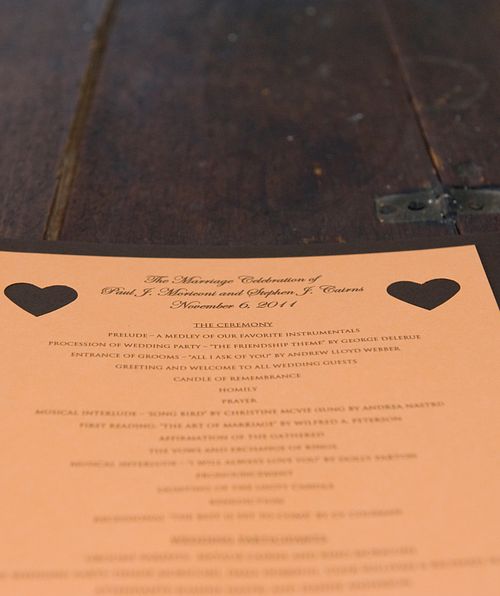 The Marriage Celebration of
Paul J. Moriconi and Stephen J. Cairns
November 6, 2011
THE CEREMONY
PRELUDE – A MEDLEY OF OUR FAVORITE INSTRUMENTALS
PROCESSION OF WEDDING PARTY – "THE FRIENDSHIP THEME" BY GEORGE DELERUE
ENTRANCE OF GROOMS – "ALL I ASK OF YOU" BY ANDREW LLOYD WEBBER
GREETING AND WELCOME TO ALL WEDDING GUESTS
CANDLE OF REMEMBRANCE
HOMILY
PRAYER
MUSICAL INTERLUDE – 'SONG BIRD' BY CHRISTINE MCVIE (SUNG BY ANDREA NASTRO
FIRST READING: "THE ART OF MARRIAGE" BY WILFRED A. PETERSON
AFFIRMATION OF THE GATHERED
THE VOWS AND EXCHANGE OF RINGS
MUSICAL INTERLUDE – "I WILL ALWAYS LOVE YOU" BY DOLLY PARTON
PRONOUNCEMENT
LIGHTING OF THE UNITY CANDLE
BENEDICTION
"THE BEST IS YET TO COME" BY CY COLEMAN
WEDDING PARTICIPANTS